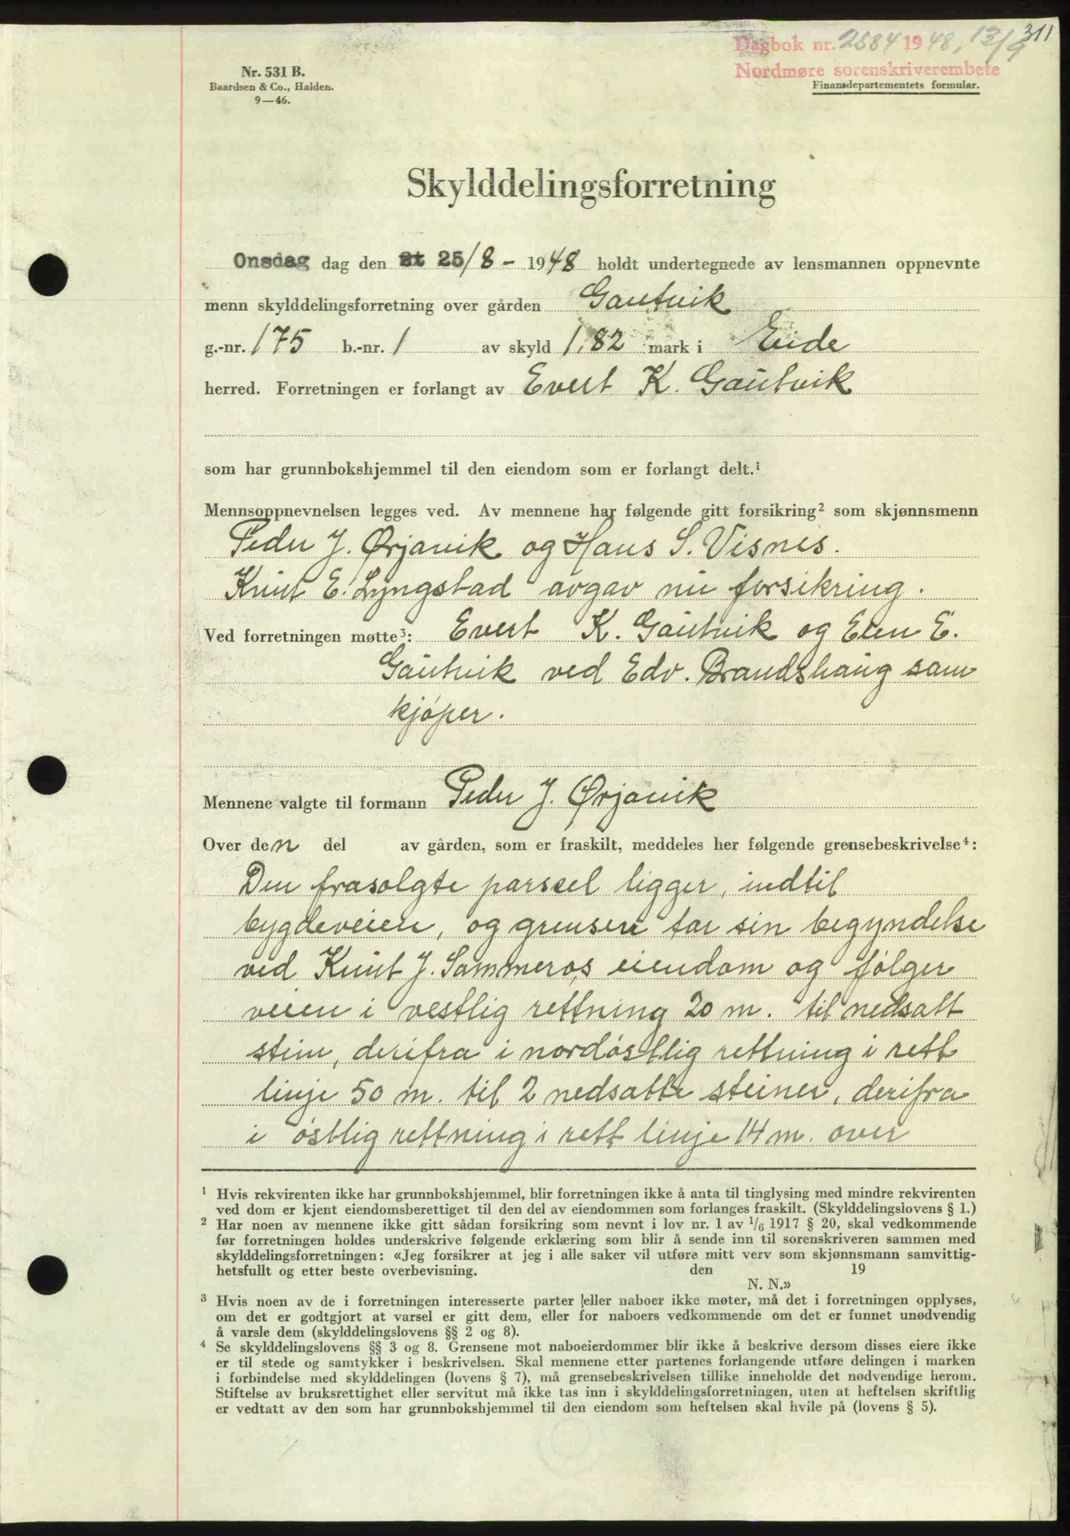 311
Dagbok nr. 2584 1948, 13/9
Nordmøre sorenskriverembete
Finansdepartementets formular.
Nr. 531 B.
Baardsen & Co., Halden.
9—46.
Skylddelingsforretning
Onsdag dag den 25/8 - 1948 holdt undertegnede av lensmannen oppnevnte
menn skylddelingsforretning over gården Gautvik
g.-nr. 175 b.-nr. 1 av skyld 1,82 mark i Eide
herred. Forretningen er forlangt av Evert K. Gautvik
som har grunnbokshjemmel til den eiendom som er forlangt delt.¹
Mennsoppnevnelsen legges ved. Av mennene har følgende gitt forsikring² som skjønnsmenn
Peder J. Ørjavik og Hans S. Visnes.
Knut E. Lyngstad avgav nu forsikring.
Ved forretningen møtte³: Evert K. Gautvik og Elen E.
Gautvik ved Edv. Brandshaug som
kjøper.
Mennene valgte til formann Peder J. Ørjavik
Over den del av gården, som er fraskilt, meddeles her følgende grensebeskrivelse⁴:
Den frasolgte parssel ligger, indtil
bygdeveien, og grensen tar sin begyndelse
ved Knut J. Sammerøs eiendom og følger
veien i vestlig rettning 20 m. til nedsatt
stein, derifra i nordøstlig rettning i rett
linje 50 m. til 2 nedsatte steiner, derifra
i østlig rettning i rett linje 14 m. over
¹ Hvis rekvirenten ikke har grunnbokshjemmel, blir forretningen ikke å anta til tinglysing med mindre rekvirenten
ved dom er kjent eiendomsberettiget til den del av eiendommen som forlanges fraskilt. (Skylddelingslovens § 1.)
² Har noen av mennene ikke gitt sådan forsikring som nevnt i lov nr. 1 av 1/6 1917 § 20, skal vedkommende
før forretningen holdes underskrive følgende erklæring som blir å sende inn til sorenskriveren sammen med
skylddelingsforretningen: «Jeg forsikrer at jeg i alle saker vil utføre mitt verv som skjønnsmann samvittig-
hetsfullt og etter beste overbevisning. den 19
N. N.»
³ Hvis noen av de i forretningen interesserte parter eller naboer ikke møter, må det i forretningen opplyses,
om det er godtgjort at varsel er gitt dem, eller for naboers vedkommende om det er funnet unødvendig
å varsle dem (skylddelingslovens §§ 2 og 8).
⁴ Se skylddelingslovens §§ 3 og 8. Grensene mot naboeiendommer blir ikke å beskrive dersom disses eiere ikke
er til stede og samtykker i beskrivelsen. Skal mennene etter partenes forlangende utføre delingen i marken
i forbindelse med skylddelingen (lovens § 7), må grensebeskrivelsen tillike inneholde det nødvendige herom.
Stiftelse av bruksrettighet eller servitut må ikke tas inn i skylddelingsforretningen, uten at heftelsen skriftlig
er vedtatt av den som har grunnbokshjemmel til den eiendom som heftelsen skal hvile på (lovens § 5).